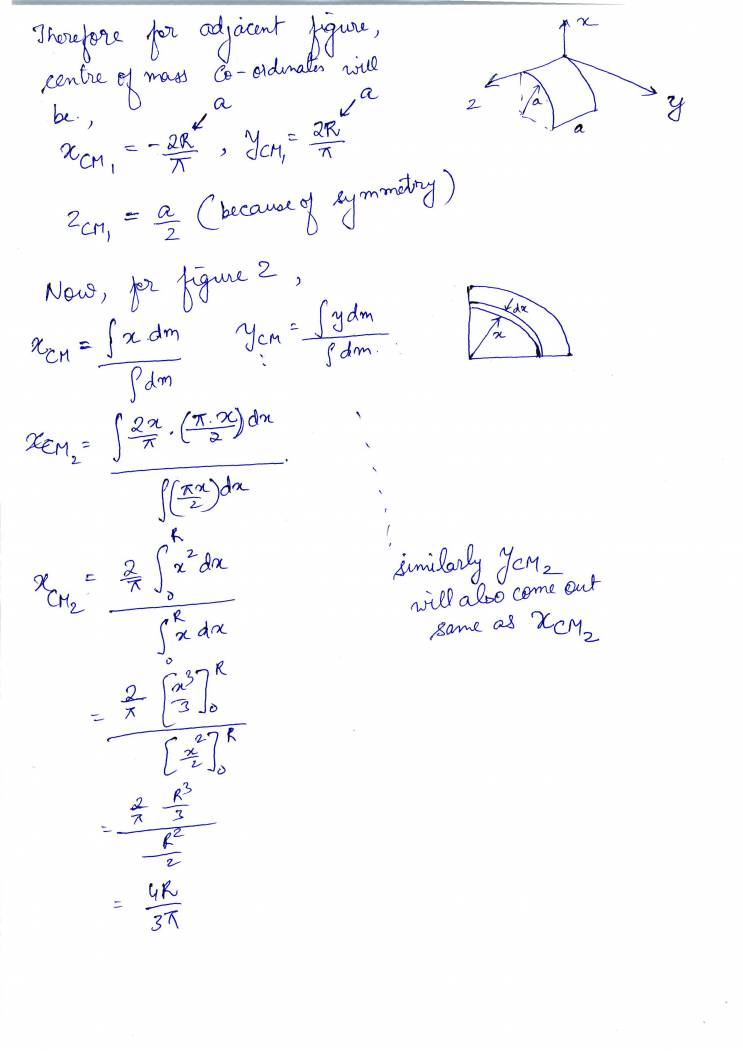 Therefore for adjacent figure,
centre of mass co-ordinates will
be.,
a
a
x_CM₁ = -2R/π , y_CM₁ = 2R/π
z_CM₁ = a/2 (because of symmetry)
x
z
a
a
y
Now, for figure 2,
x_CM = ∫x dm / ∫dm
y_CM = ∫y dm / ∫dm.
dx
x
x_CM₂ = ∫ 2x/π . (π.x/2) dx / ∫(πx/2) dx
x_CM₂ = 2/π ∫₀ᴿ x² dx / ∫₀ᴿ x dx
similarly y_CM₂
will also come out
same as x_CM₂
= 2/π [x³/3]₀ᴿ / [x²/2]₀ᴿ
= 2/π R³/3 / R²/2
= 4R/3π